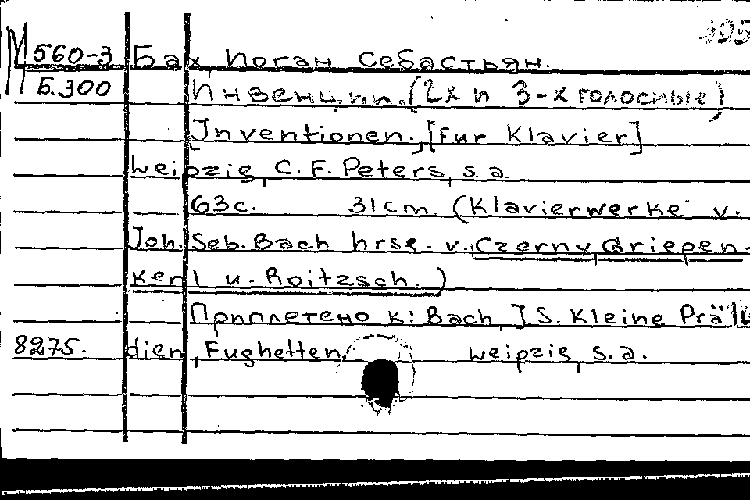 М 560-3 Бах, Иоган Себастьян.
Б.300 Инвенции. (2х и 3-х голосные)
Inventionen. [Fur Klavier]
Leipzig, C. F. Peters, s. a.
63с. 31cm. (Klavierwerke v.
Joh. Seb. Bach hrsg. v. Czerny, Griepen-
kerl u. Roitzsch.)
Приплетено к: Bach, J. S. Kleine Prälu
8275. dien, Fughetten, Leipzig, s. a.